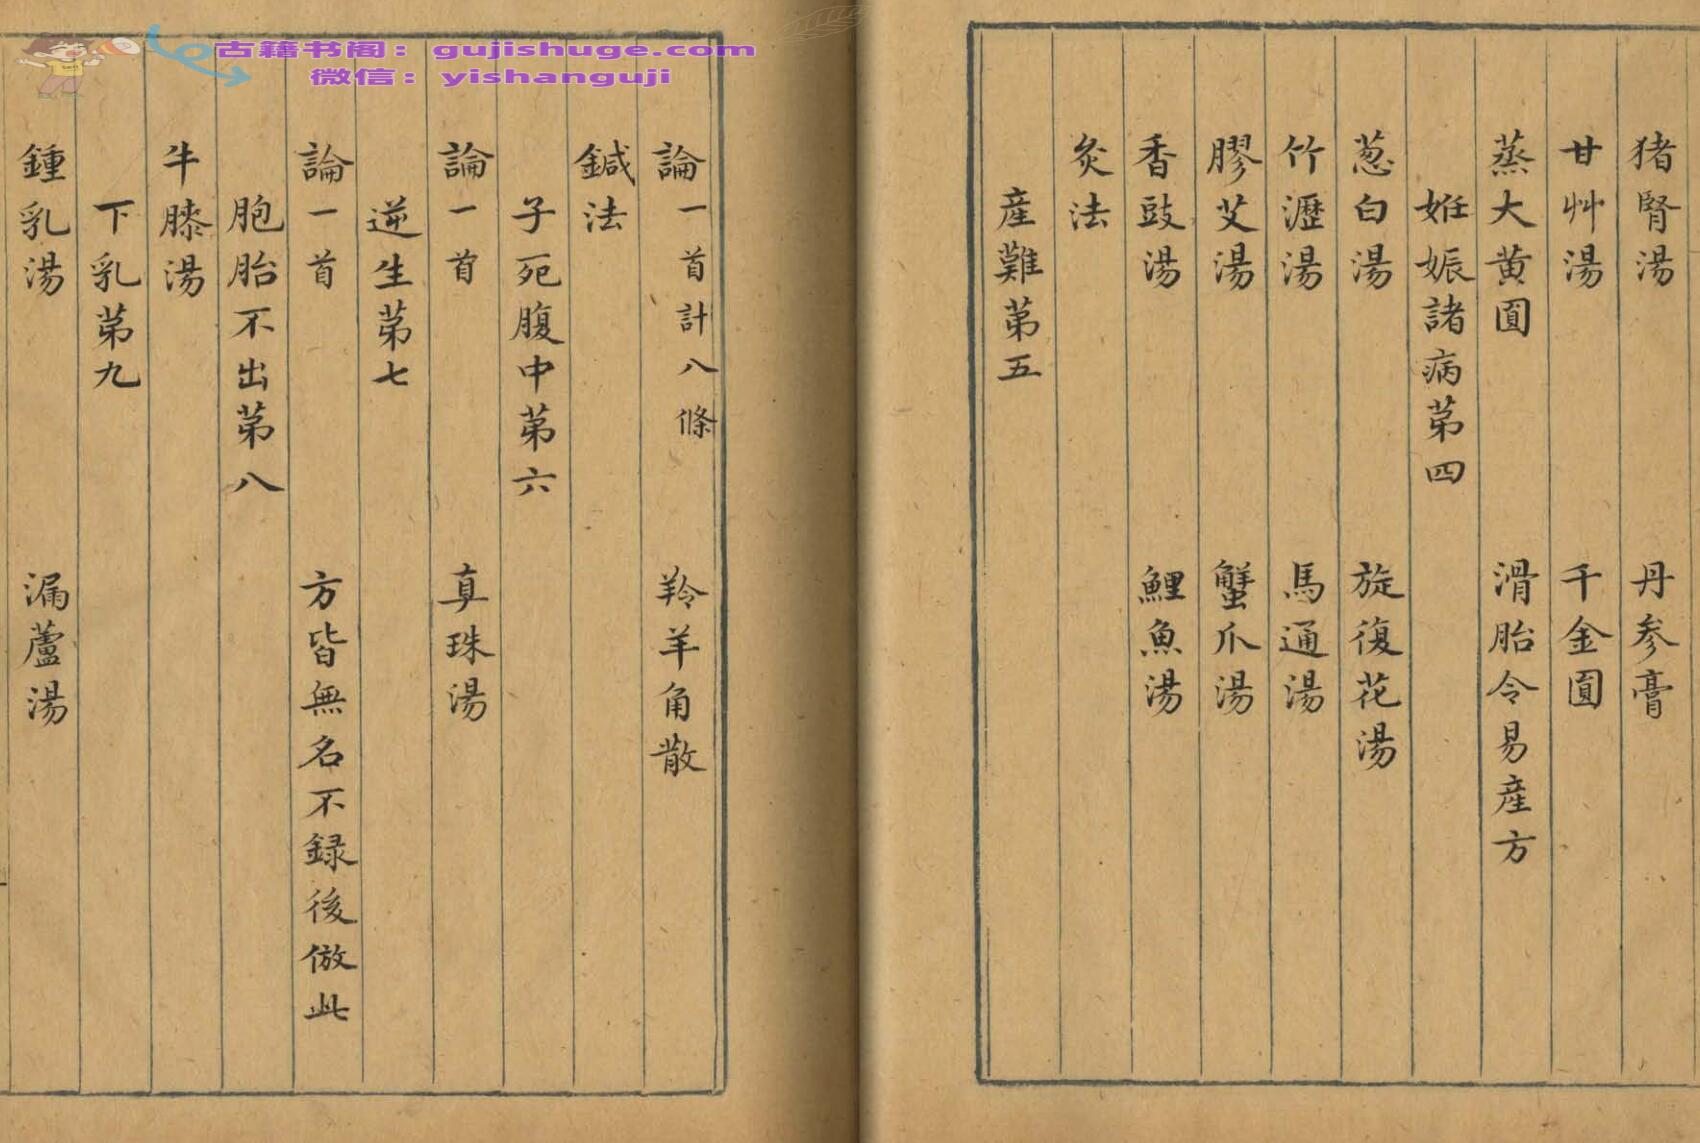 古籍书阁：gujishuge.com
微信：yishanguji
猪腎湯 丹参膏
甘艸湯 千金圓
蒸大黄圓 滑胎令易産方
姙娠諸病第四
葱白湯 旋復花湯
竹瀝湯 馬通湯
膠艾湯 蟹爪湯
香豉湯 鯉魚湯
灸法
産難第五
論一首計八條 羚羊角散
鍼法
子死腹中第六
論一首 真珠湯
逆生第七
論一首 方皆無名不録後倣此
胞胎不出第八
牛膝湯
下乳第九
鍾乳湯 漏蘆湯